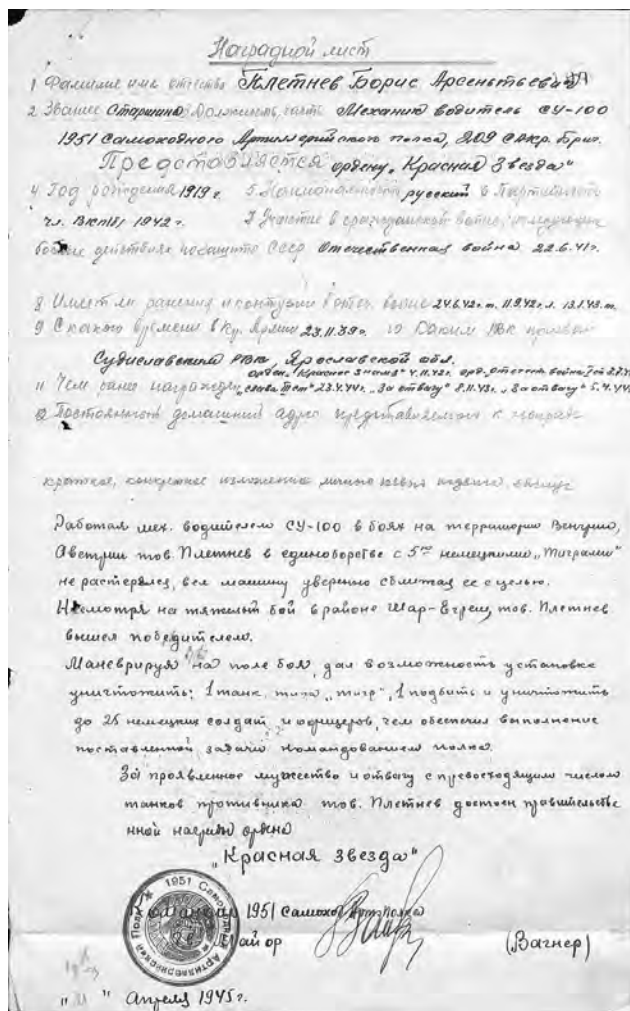 Наградной лист
1 Фамилия имя отчество Плетнев Борис Арсентьевич
2 Звание Старшина Должность, часть Механик водитель СУ-100
1951 Самоходного Артиллерийского полка, 209 САбр. Бриг.
Представляется ордену "Красная Звезда"
4 Год рождения 1919 г. 5. Национальность русский 6 Партийность
чл. ВКП(б) 1942 г. 7 Участие в гражданской войне, последующих
боевых действиях по защите СССР Отечественная война 22.6.41г.
8 Имеет ли ранения и контузии в отеч. войне 24.6.42г. т. 11.9.42г. л. 13.1.43.т.
9 С какого времени в Кр. Армии 23.11.39г. 10 Каким РВК призван
Судиславским РВК, Ярославской обл.
орден "Красное Знамя" 4.11.43г. орд. отечеств. война
11 Чем ранее награжден "Слава III ст" 23.4.44г. "За отвагу" 8.11.43г. "За отвагу" 5.4.44
12 Постоянный домашний адрес представляемого к награде
краткое, конкретное изложение личного боевого подвига,
Работая мех. водителем СУ-100 в боях на территории Венгрии,
Австрии тов. Плетнев в единоборстве с 5ю немецкими "Тиграми"
не растерялся, вел машину уверенно сближая ее с целью.
Несмотря на тяжелый бой в районе Шар-Егреш, тов. Плетнев
вышел победителем.
Маневрируя на поле боя, дал возможность установке
уничтожить: 1 танк, типа "тигр", 1 подбить и уничтожить
до 25 немецких солдат и офицеров, чем обеспечил выполнение
поставленной задачи командованием полка.
За проявленное мужество и отвагу с превосходящим числом
танков противника тов. Плетнев достоен правительстве
нной награды ордена
"Красная Звезда"
Командир 1951 Самоход. Артполка
Майор (Вагнер)
"11" Апреля 1945г.
1951 Самоходный Артиллерийский Полк